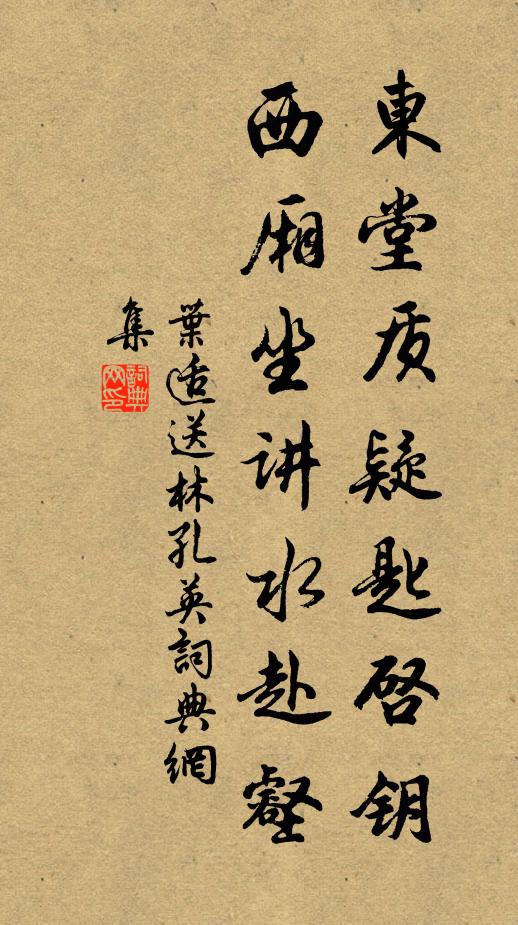 東堂质疑匙启钥
西厢坐讲水赴壑
葉适送林孔英詞典網
集
詞典
网印